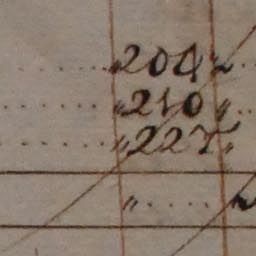 ........ „ 204 „ ..
........ „ 210 „ ..
........ „ 227 „
„ ..... „